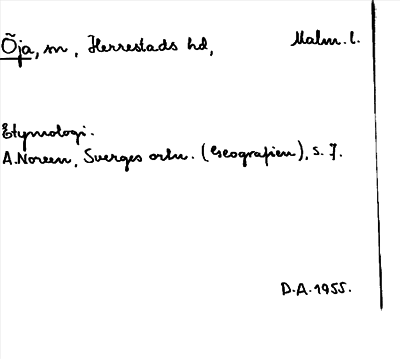 Öja, m, Herrestads hd, Malm. l.
Etymologi.
A. Noreen, Sverges ortn. (Geografien), s. 7.
D.A. 1955.